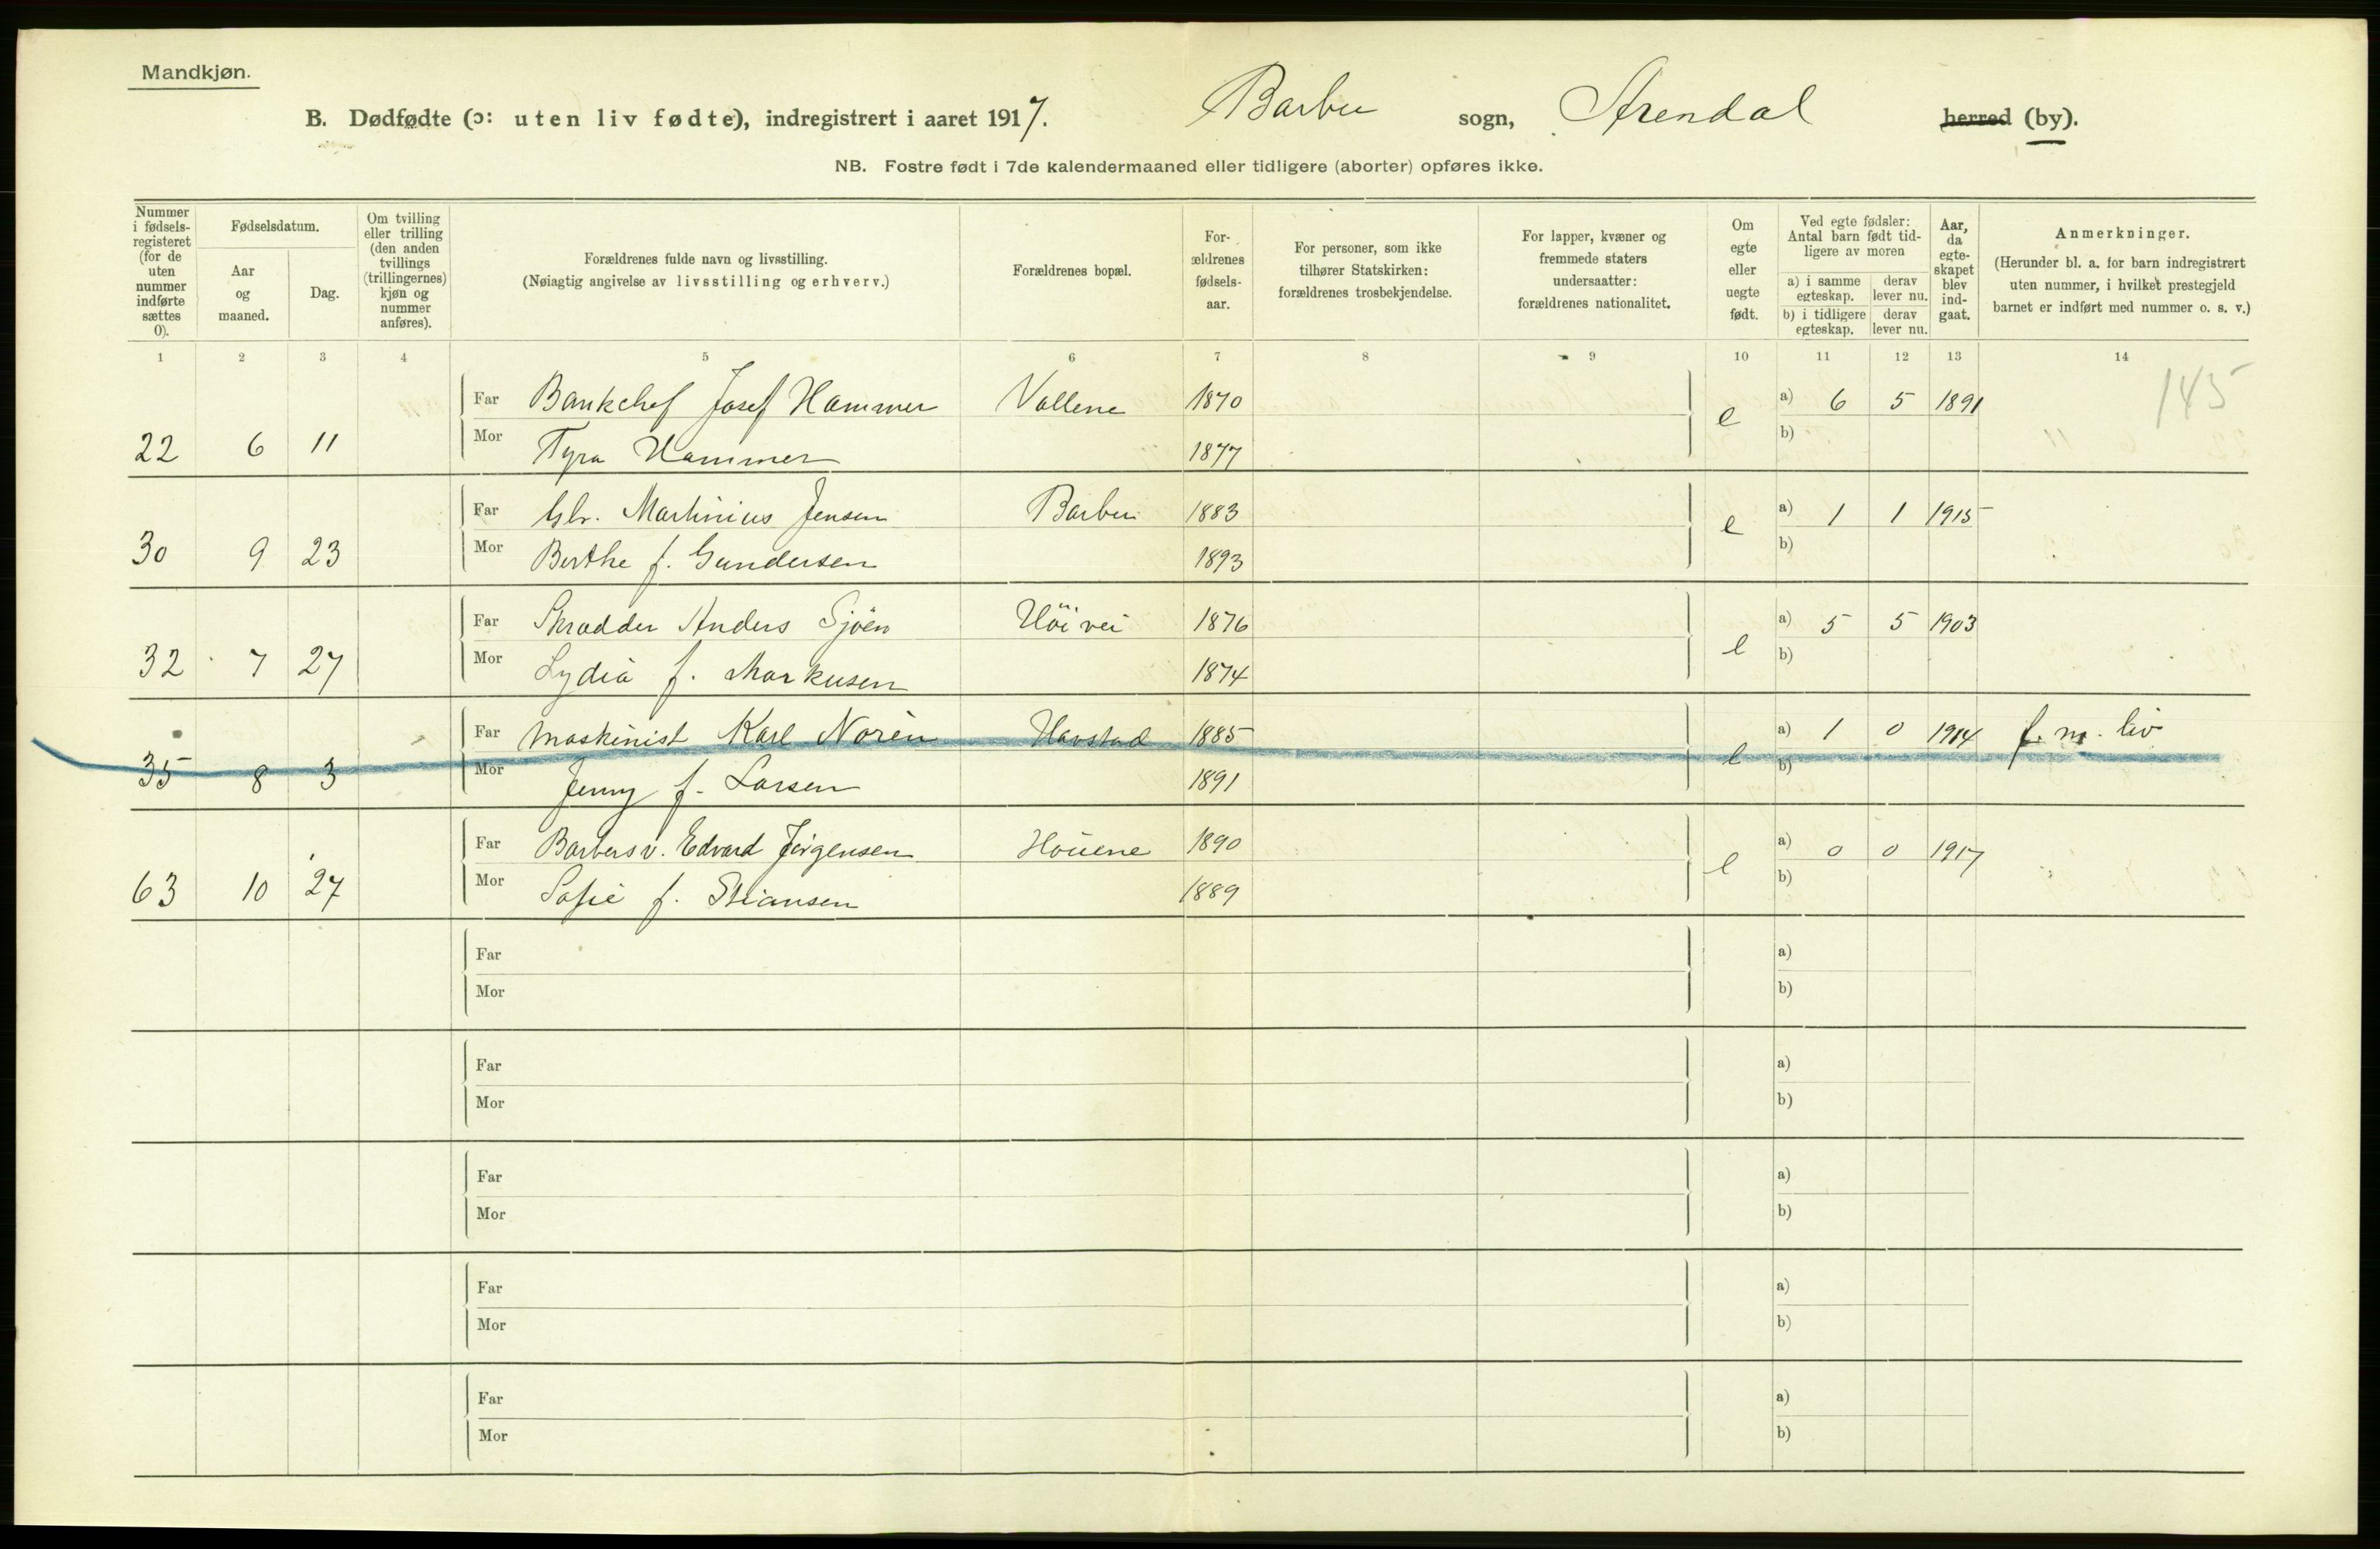 Mandkjøn.
B. Dødfødte (ɔ: uten liv fødte), indregistrert i aaret 1917. Barbu sogn, Arendal herred (by).
NB. Fostre født i 7de kalendermaaned eller tidligere (aborter) opføres ikke.
Nummer i fødsels-registeret (for de uten nummer indførte sættes 0).
Fødselsdatum.
Aar og maaned.
Dag.
Om tvilling eller trilling (den anden tvillings (trillingernes) kjøn og nummer anføres).
Forældrenes fulde navn og livsstilling.
(Nøiagtig angivelse av livsstilling og erhverv.)
Forældrenes bopæl.
For-ældrenes fødsels-aar.
For personer, som ikke tilhører Statskirken: forældrenes trosbekjendelse.
For lapper, kvæner og fremmede staters undersaatter: forældrenes nationalitet.
Om egte eller uegte født.
Ved egte fødsler: Antal barn født tid-ligere av moren
a) i samme egteskap. derav lever nu.
b) i tidligere egteskap. derav lever nu.
Aar, da egte-skapet blev ind-gaat.
Anmerkninger.
(Herunder bl. a. for barn indregistrert uten nummer, i hvilket prestegjeld barnet er indført med nummer o. s. v.)
1 2 3 4 5 6 7 8 9 10 11 12 13 14
145
Far Bankchef Josef Hammer Vollene 1870 a) 6 5 1891
22 6 11 Mor Tyra Hammer 1877 e b)
Far Martinius Jensen Barbu 1883 a) 1 1 1915
30 9 23 Mor Berthe f. Gundersen 1893 e b)
Far Skrædder Anders Sjöen Höivei 1876 a) 5 5 1903
32 7 27 Mor Lydia f. Markusen 1874 e b)
Far Maskinist Karl Norén Havstad 1885 a) 1 0 1914 f. m. liv
35 8 3 Mor Jenny f. Larsen 1891 e b)
Far Barbersv. Edvard Jörgensen Houene 1890 a) 0 0 1917
63 10 27 Mor Sofie f. Stiansen 1889 e b)
Far a)
Mor b)
Far a)
Mor b)
Far a)
Mor b)
Far a)
Mor b)
Far a)
Mor b)